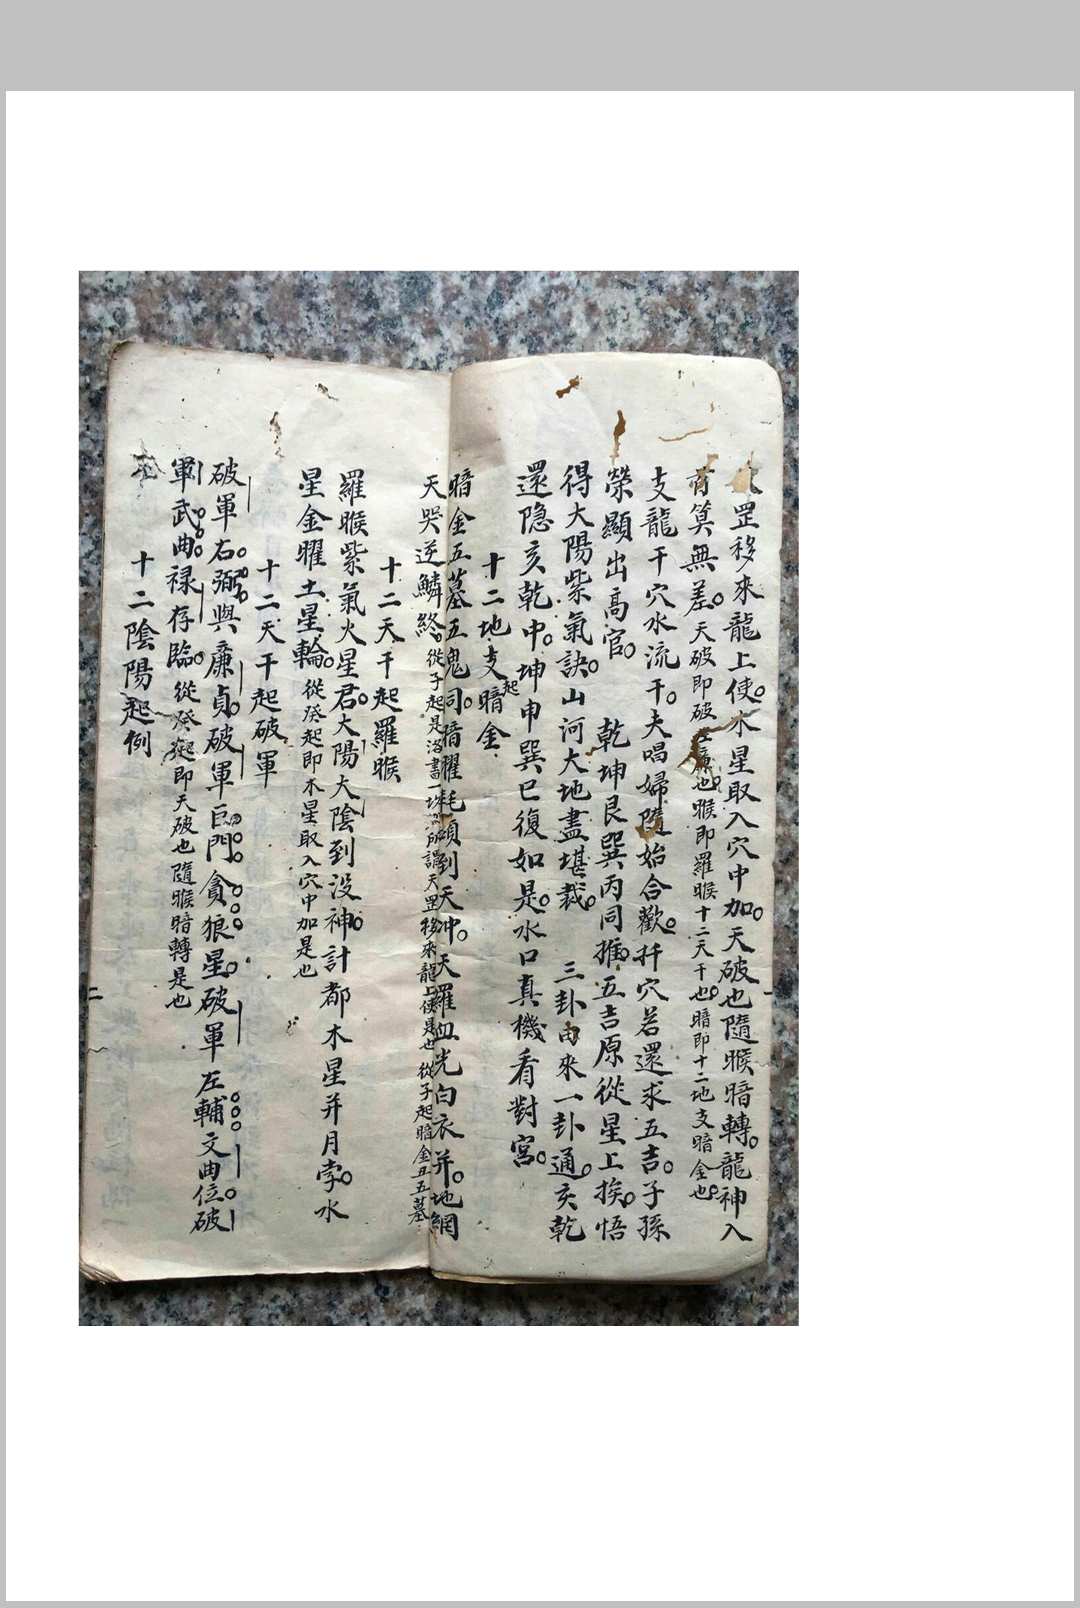 罡移來龍上使木星取入穴中加天破也隨睺暗轉龍神入
首筭無差天破即破左廉也睺即羅睺十二天干也暗即十二地支暗金也
支龍干穴水流干夫唱婦隨始合歡扦穴若還求五吉子孫
榮顯出高官 乾坤艮巽丙同推五吉原從星上挨悟
得大陽紫氣訣山河大地盡堪裁 三卦由來一卦通亥乾
還隐亥乾中坤申巽巳復如是水口真機看對宮
十二地支起暗金
暗金五墓五鬼司暗曜耗頭到天沖天羅血光白衣并地網
天哭逆鱗終從子起是洛書一坎所謂天罡移來龍上使是也 從子起暗金丑五墓
十二天干起羅睺
羅睺紫氣火星君大陽大陰到没神計都木星并月孛水
星金曜土星輪從癸起即木星取入穴中加是也
十二天干起破軍
破軍右弼與廉貞破軍巨門貪狼星破軍左輔文曲位破
軍武曲禄存臨從癸起即天破也隨睺暗轉是也
十二陰陽起例
二